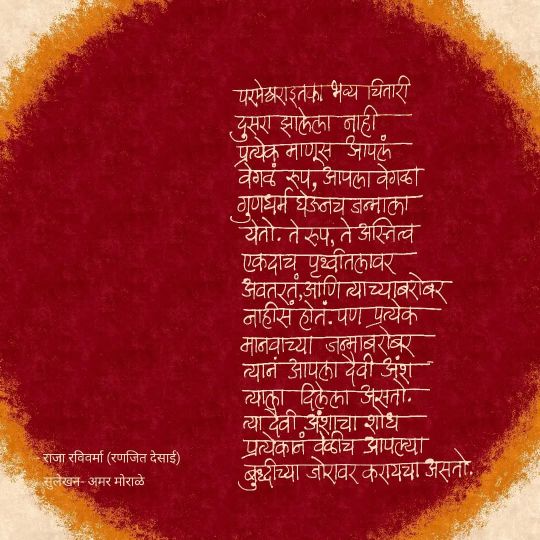 परमेश्वराइतका भव्य चितारी
दुसरा झालेला नाही
प्रत्येक माणूस आपलं
वेगळं रुप, आपला वेगळा
गुणधर्म घेऊनच जन्माला
येतो. ते रुप, ते अस्तित्व
एकदाच पृथ्वीतलावर
अवतरतं,आणि त्याच्याबरोबर
नाहीसं होतं. पण प्रत्येक
मानवाच्या जन्माबरोबर
त्यानं आपला दैवी अंश
त्याला दिलेला असतो.
त्या दैवी अंशाचा शोध
प्रत्येकानं वेळीच आपल्या
बुद्धीच्या जोरावर करायचा असतो.
- राजा रविवर्मा (रणजित देसाई)
सुलेखन- अमर मोराळे